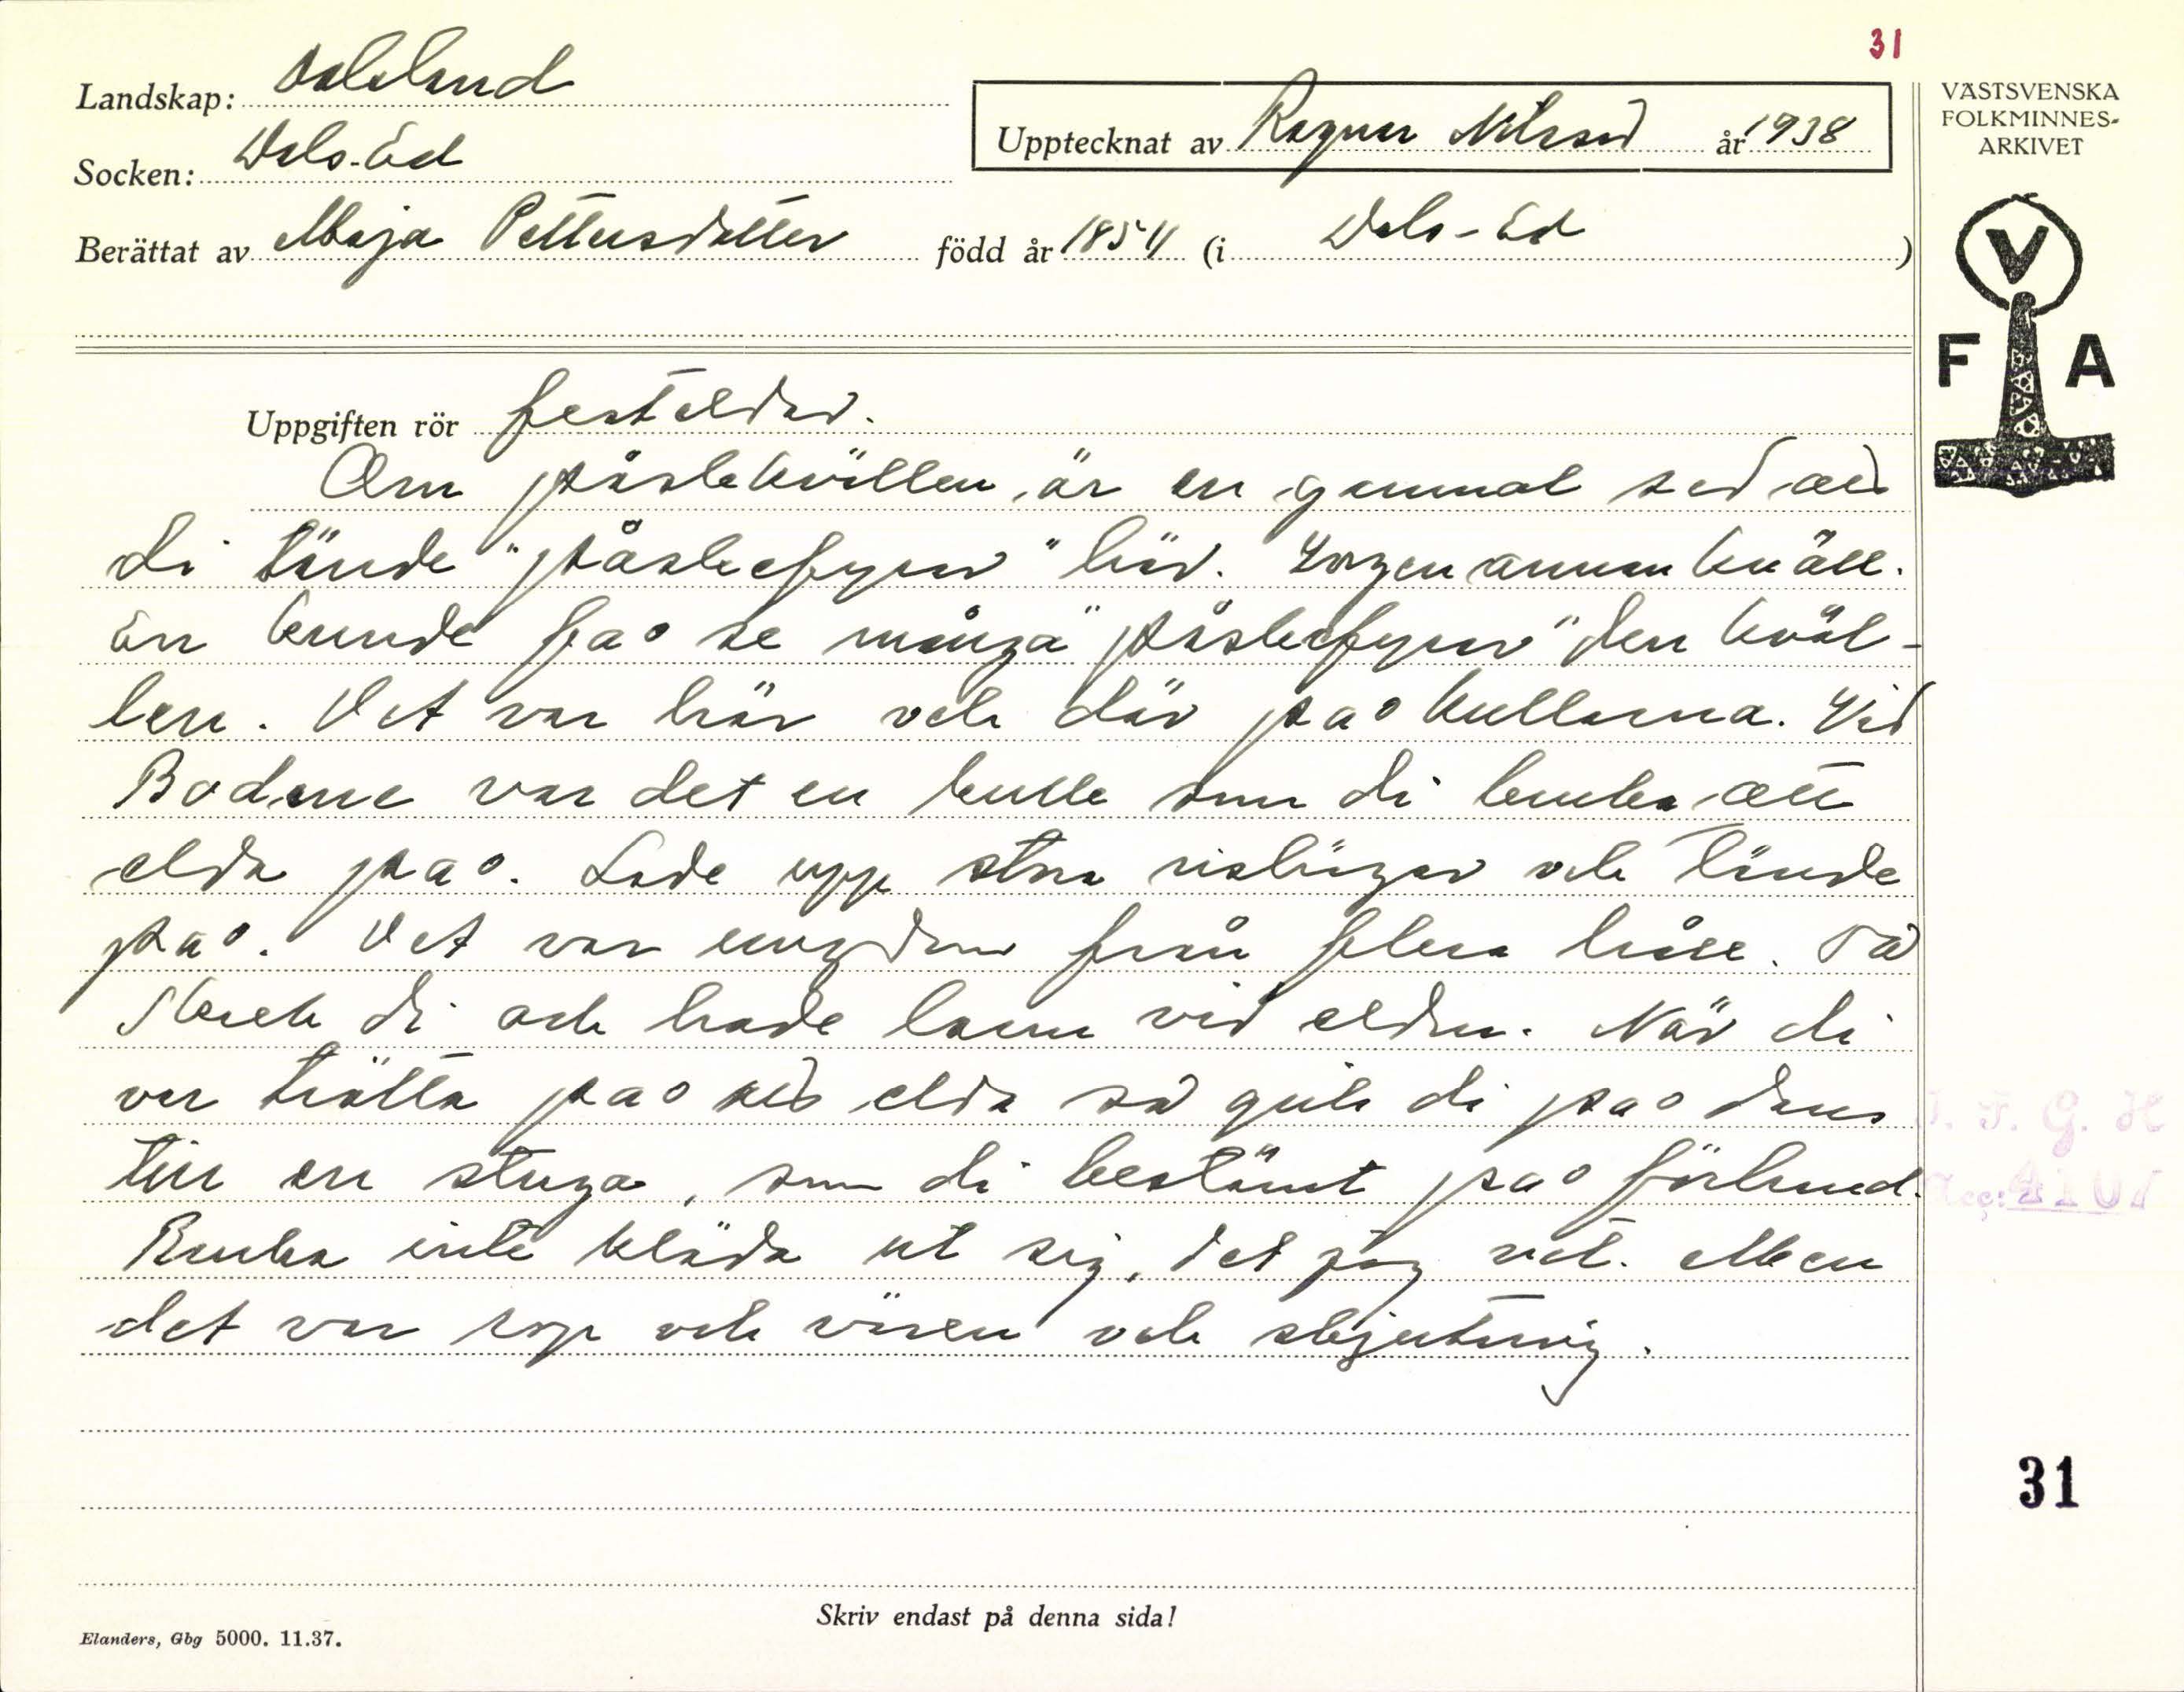 31
Landskap: Dalsland
Socken: Dals-Ed
Upptecknat av Ragnar Nilsson år 1938
Berättat av Maja Pettersdotter född år 1854 (i Dals-Ed)
VÄSTSVENSKA
FOLKMINNES-
ARKIVET
V
F A
Uppgiften rör festeldar.
Om påskekvällen är en gammal sed att
di tände "påskefyrar" här. Ingen annan kväll.
En kunde få se många "påskefyrar" den kväl-
len. Det var här och där på kullarna. Vid
Bodane var det en kulle som di bruka att
elda på. Lade upp stora rishögar och tände
på. Det var ungdom från flera håll. Så
skrek di och hade larm vid elden. När di
var trötta på att elda så gick di på dans
till en stuga, som di bestämt på förhand.
Bruka inte kläda ut sig, det jag vet. Men
det var rop och väsen och skjutning.
31
Skriv endast på denna sida!
Elanders, Gbg 5000. 11.37.